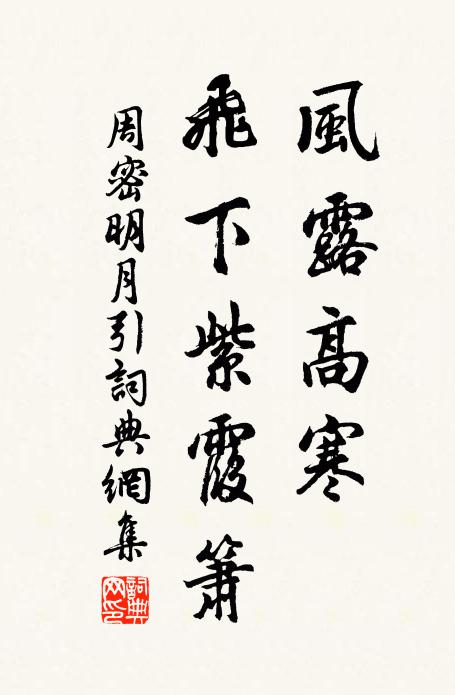 風露高寒
飛下紫霞簫
周密明月引詞典網集
詞典网印